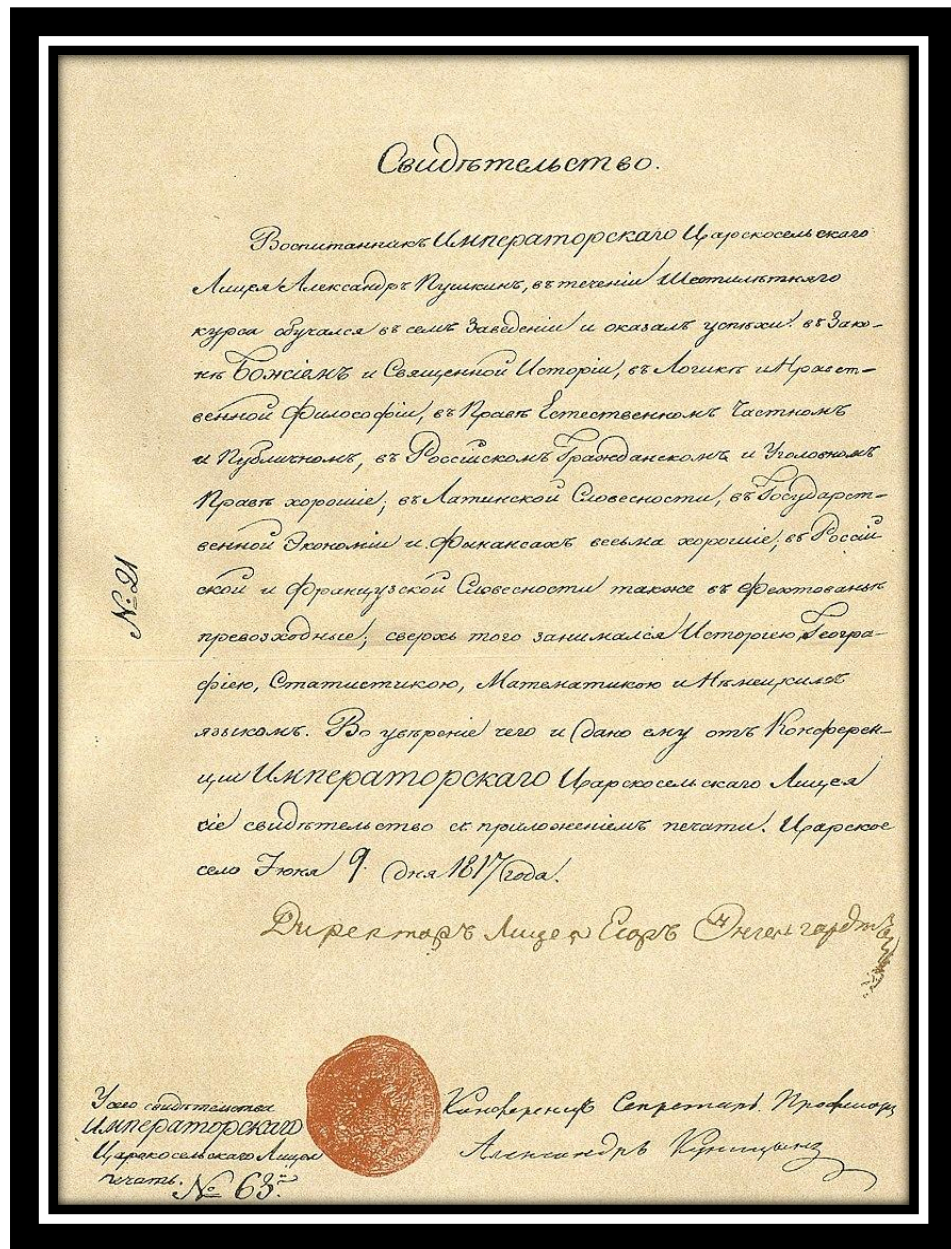 Свидѣтельство.
Воспитанникъ Императорскаго Царскосельскаго
Лицея Александръ Пушкинъ, въ теченіи Шестилѣтняго
курса обучался въ семъ Заведеніи и оказалъ успѣхи: въ Зако-
нѣ Божіемъ и Священной Исторіи, въ Логикѣ и Нравст-
венной Философіи, въ Правѣ Естественномъ Частномъ
и Публичномъ, въ Россійскомъ Гражданскомъ и Уголовномъ
Правѣ хорошіе; въ Латинской Словесности, въ Государст-
венной Экономіи и Финансахъ весьма хорошіе; въ Россій
ской и Французской Словесности также въ Фехтованьи
превозходные; сверхъ того занимался Исторіею, Геогра-
фіею, Статистикою, Математикою и Нѣмецкимъ
языкомъ. Во увѣреніе чего и дано ему отъ Конферен-
ціи Императорскаго Царскосельскаго Лицея
сіе свидѣтельство съ приложеніемъ печати. Царское
село Іюня 9. дня 1817 года.
Директоръ Лицея Егоръ Энгельгардтъ
№ 21
У сего свидѣтельства
Императорскаго
Царскосельскаго Лицея
печать. № 63.
Конференцъ Секретарь Профессоръ
Александръ Куницынъ